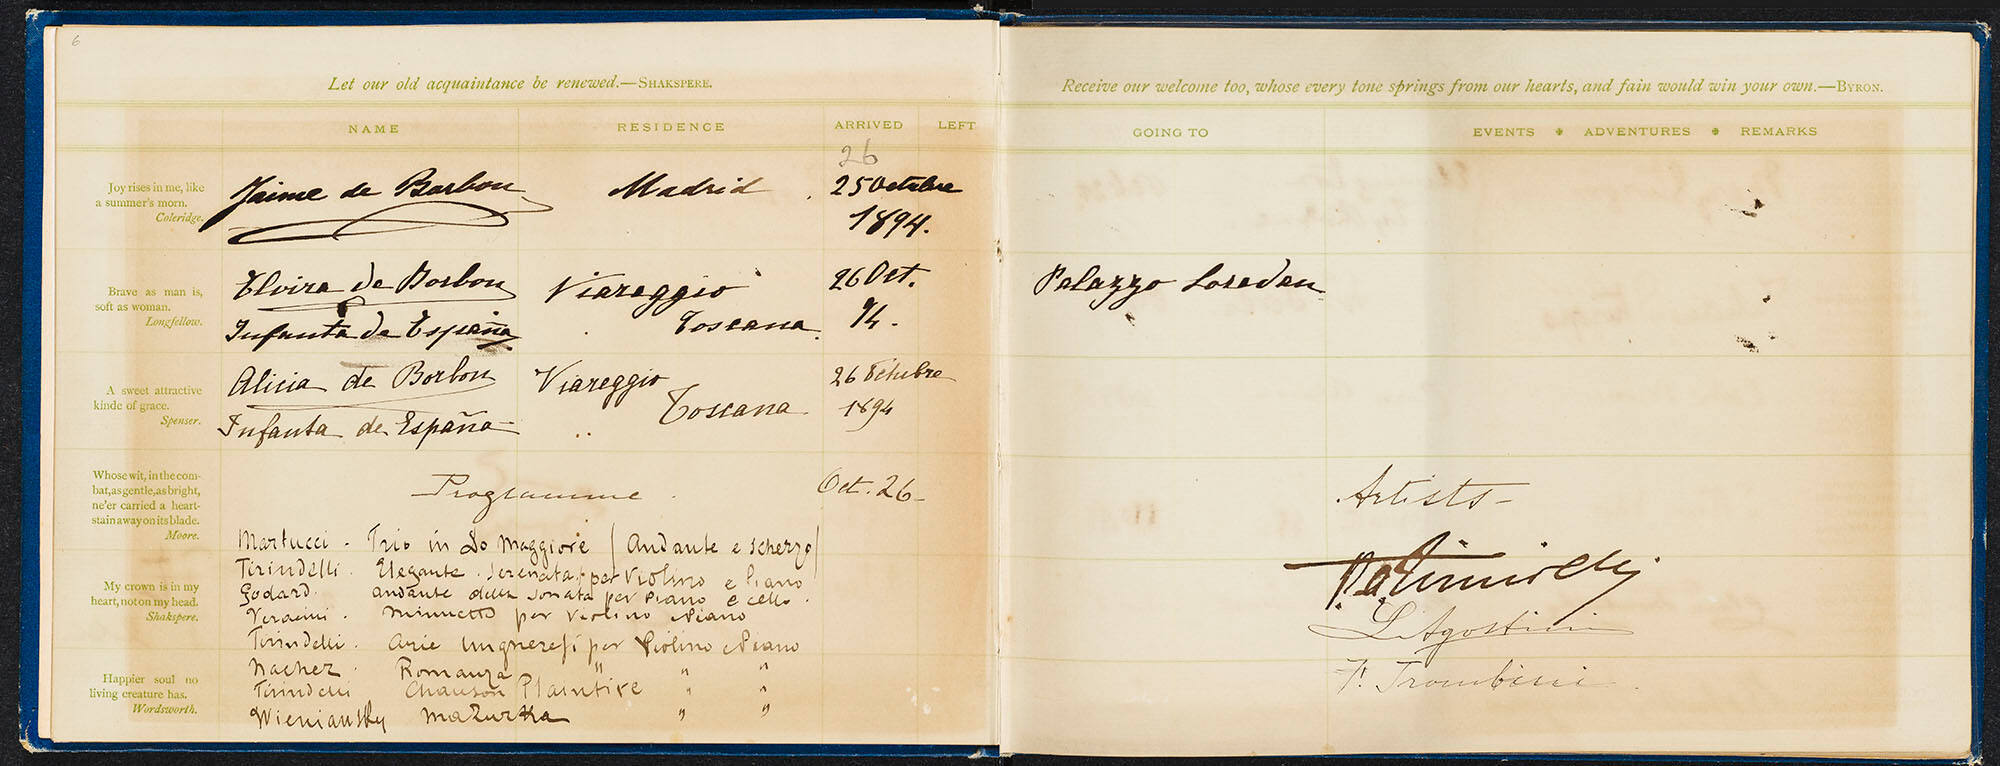 6
Let our old acquaintance be renewed.—SHAKSPERE.
NAME RESIDENCE ARRIVED LEFT
26
Joy rises in me, like
a summer's morn.
Coleridge.
Jaime de Borbon Madrid. 25 Octubre
1894.
Brave as man is,
soft as woman.
Longfellow.
Elvira de Borbon Viareggio 26 Oct.
Infanta de España Toscana. 94.
A sweet attractive
kinde of grace.
Spenser.
Alicia de Borbon Viareggio 26 Octubre
Infanta de España Toscana. 1894
Whose wit, in the com-
bat, as gentle, as bright,
ne'er carried a heart-
stain away on its blade.
Moore.
Programme. Oct. 26-
Martucci. Trio in Do Maggiore (Andante e scherzo)
My crown is in my
heart, not on my head.
Shakspere.
Tirindelli. Elegante serenata, per Violino e Piano
Godard. andante della sonata per Piano e cello.
Veracini. Minuetto per Violino Piano
Tirindelli. Arie Ungheresi per Violino Piano
Happier soul no
living creature has.
Wordsworth.
Nachez. Romanza " "
Tirindelli Chanson Plaintive " "
Wieniawsky Mazurka " "
Receive our welcome too, whose every tone springs from our hearts, and fain would win your own.—BYRON.
GOING TO EVENTS ADVENTURES REMARKS
Palazzo Loredan
Artists-
P. A. Tirindelli
L Agostini
F. Trombini.